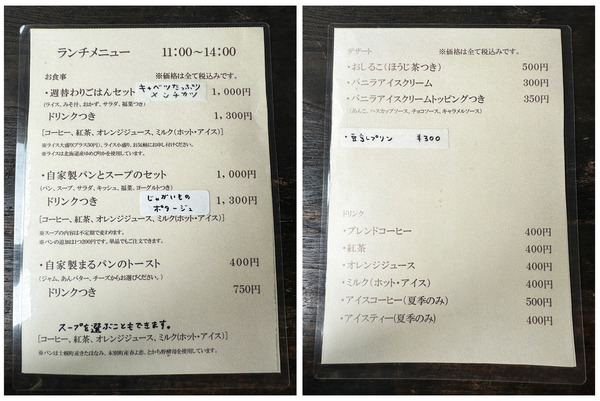 ランチメニュー　11:00～14:00
お食事　※価格は全て税込みです。
・週替わりごはんセット　キャベツたっぷりメンチカツ　1,000円
(ライス、みそ汁、おかず、サラダ、福菜つき)
ドリンクつき　1,300円
[コーヒー、紅茶、オレンジジュース、ミルク(ホット・アイス)]
※ライス大盛り(プラス50円)、ライス小盛り、お気軽にお申し付けください。
※ライスは北海道産ゆめぴりかを使用しています。
・自家製パンとスープのセット　1,000円
(パン、スープ、サラダ、キッシュ、福菜、ヨーグルトつき)
ドリンクつき　じゃがいものポタージュ　1,300円
[コーヒー、紅茶、オレンジジュース、ミルク(ホット・アイス)]
※スープの内容は不定期で変わります。
※パンの追加は1つ200円です。単品でもご注文できます。
・自家製まるパンのトースト　400円
(ジャム、あんバター、チーズからお選びください。)
ドリンクつき　750円
スープを選ぶこともできます。
[コーヒー、紅茶、オレンジジュース、ミルク(ホット・アイス)]
※パンは上幌町産きたほなみ、本別町産春よ恋、とかち野酵母を使用しています。
デザート　※価格は全て税込みです。
・おしるこ(ほうじ茶つき)　500円
・バニラアイスクリーム　300円
・バニラアイスクリームトッピングつき　350円
(あんこ、ハスカップソース、チョコソース、キャラメルソース)
・豆乳プリン　¥300
ドリンク
・ブレンドコーヒー　400円
・紅茶　400円
・オレンジジュース　400円
・ミルク(ホット・アイス)　400円
・アイスコーヒー(夏季のみ)　500円
・アイスティー(夏季のみ)　400円